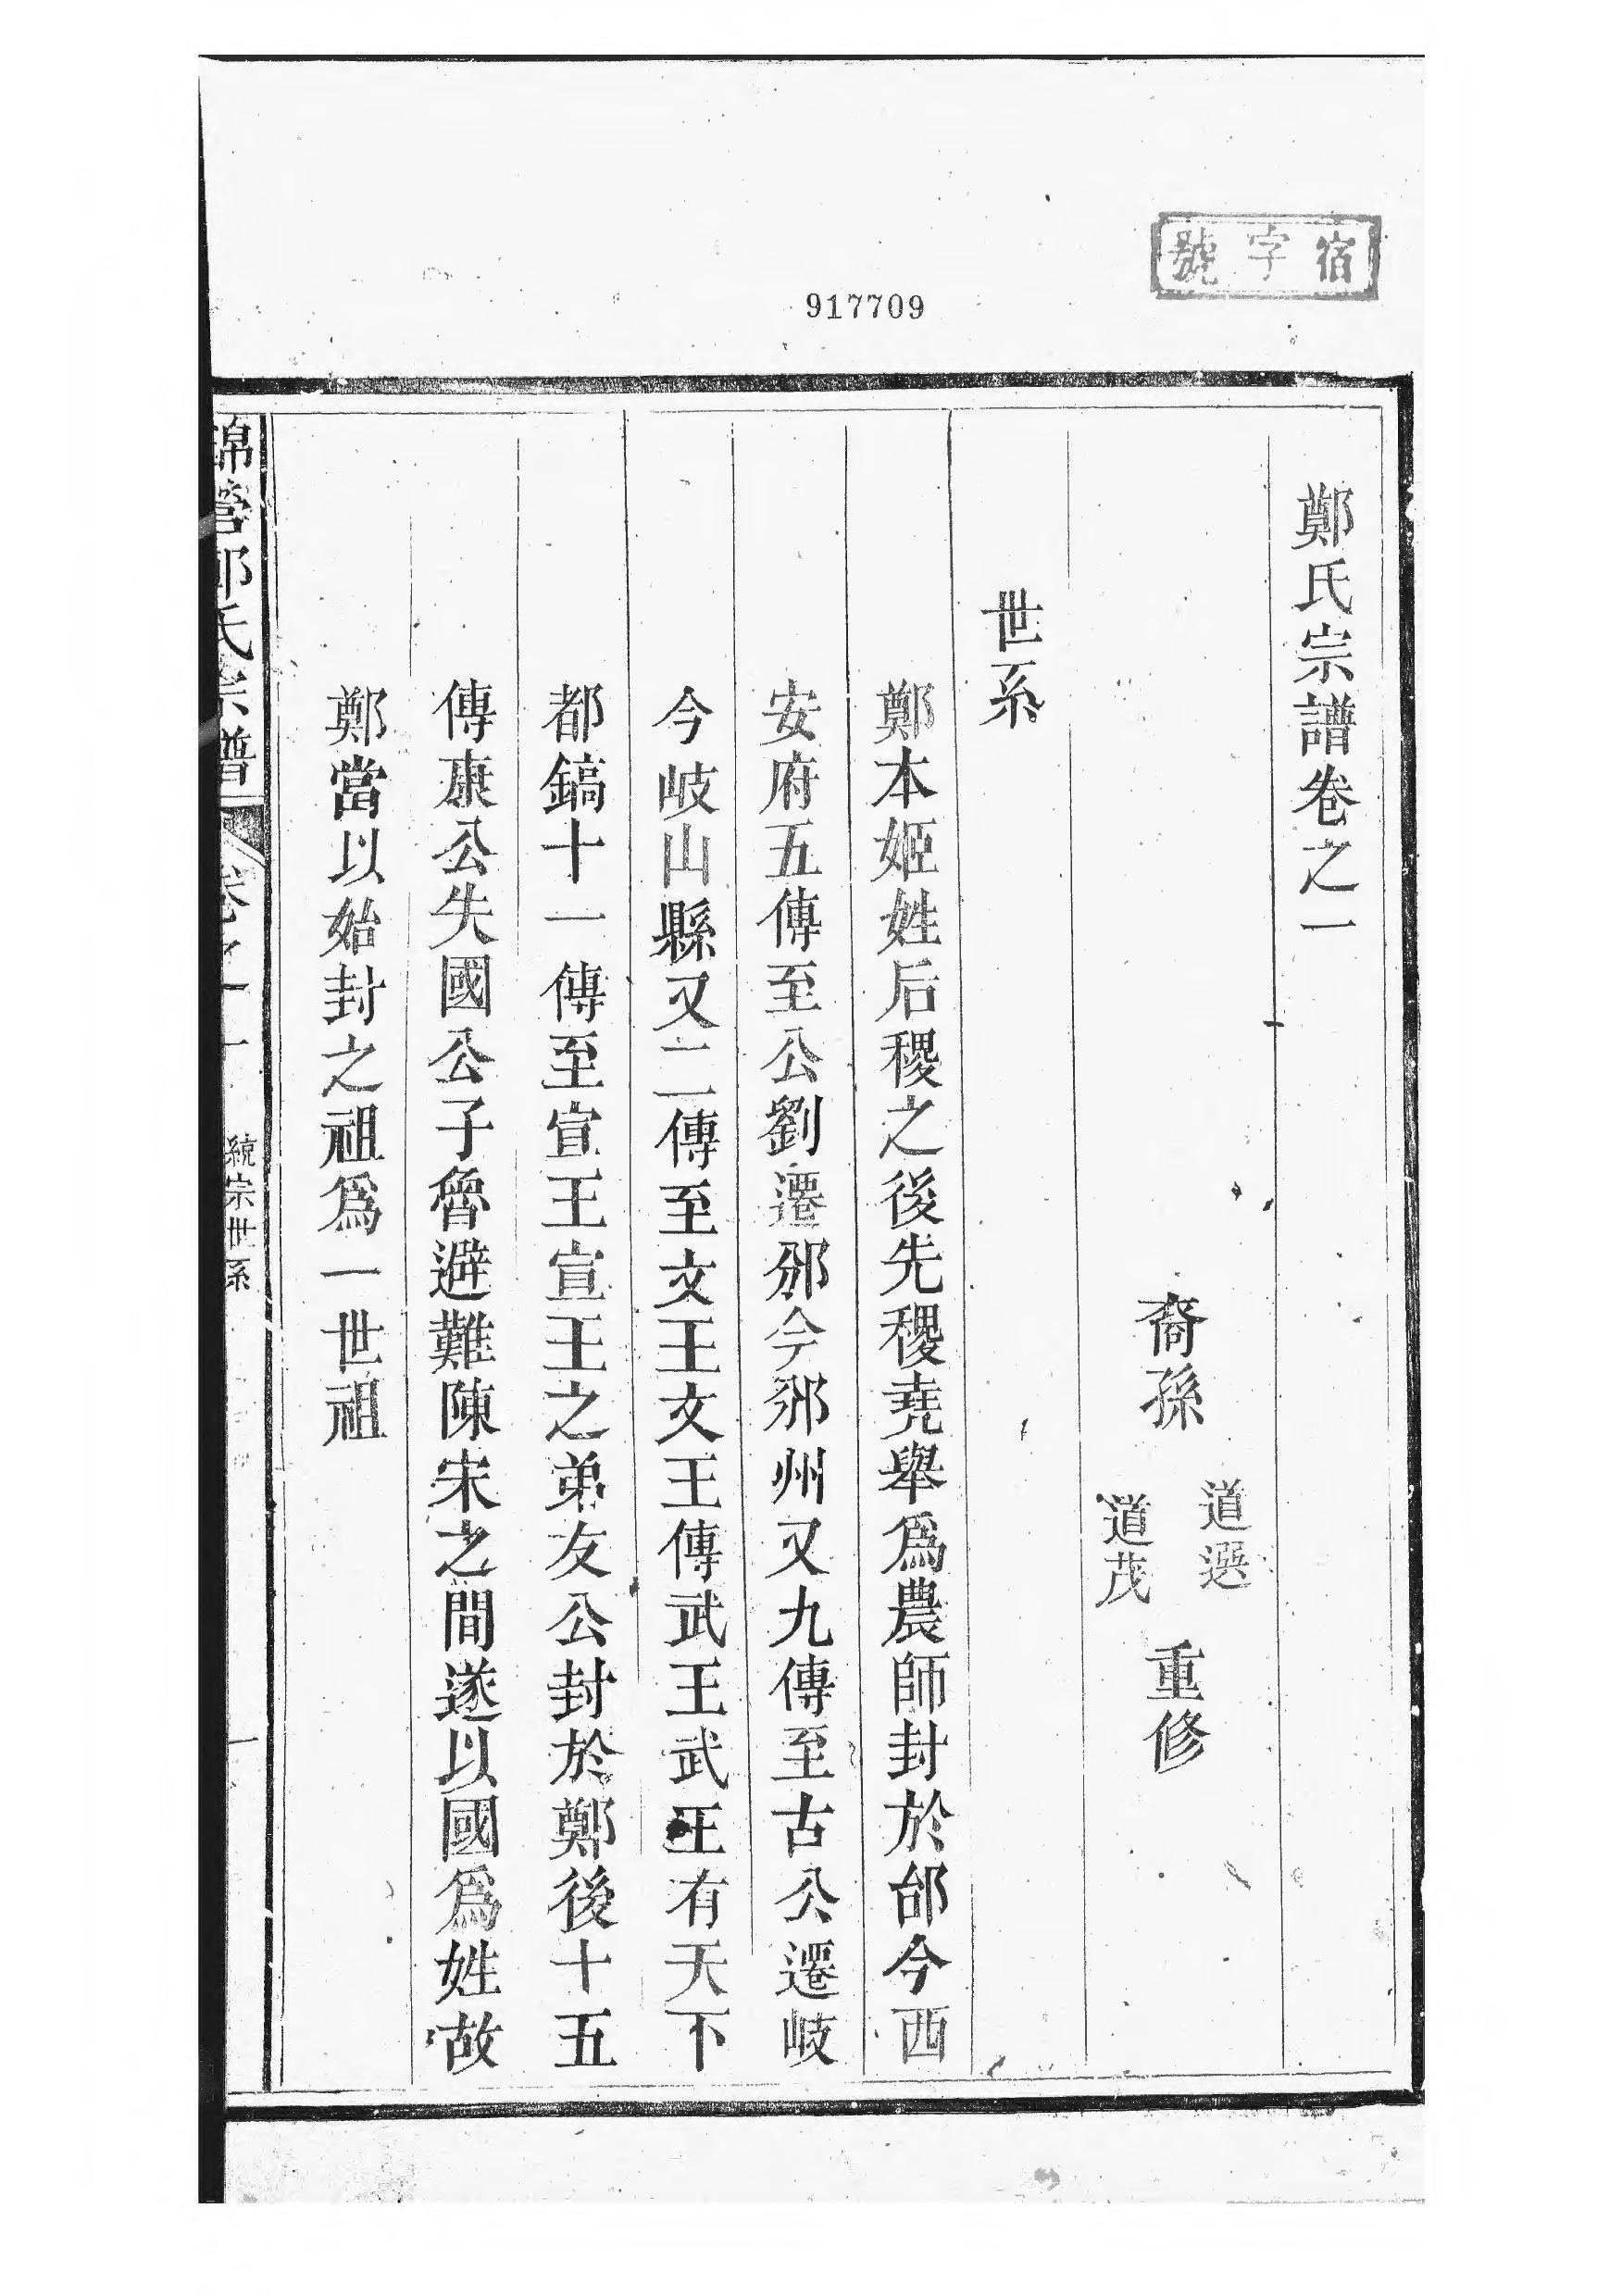 宿字號
917709
鄭氏宗譜卷之一
裔孫 道選 道茂 重修
世系
鄭本姬姓后稷之後先稷堯舉爲農師封於邰今西
安府五傳至公劉遷邠今邠州又九傳至古公遷岐
今岐山縣又二傳至文王文王傳武王武王有天下
都鎬十一傳至宣王宣王之弟友公封於鄭後十五
傳康公失國公子魯避難陳宋之間遂以國爲姓故
鄭當以始封之祖爲一世祖
錦營鄭氏宗譜 卷之一 統宗世系 一